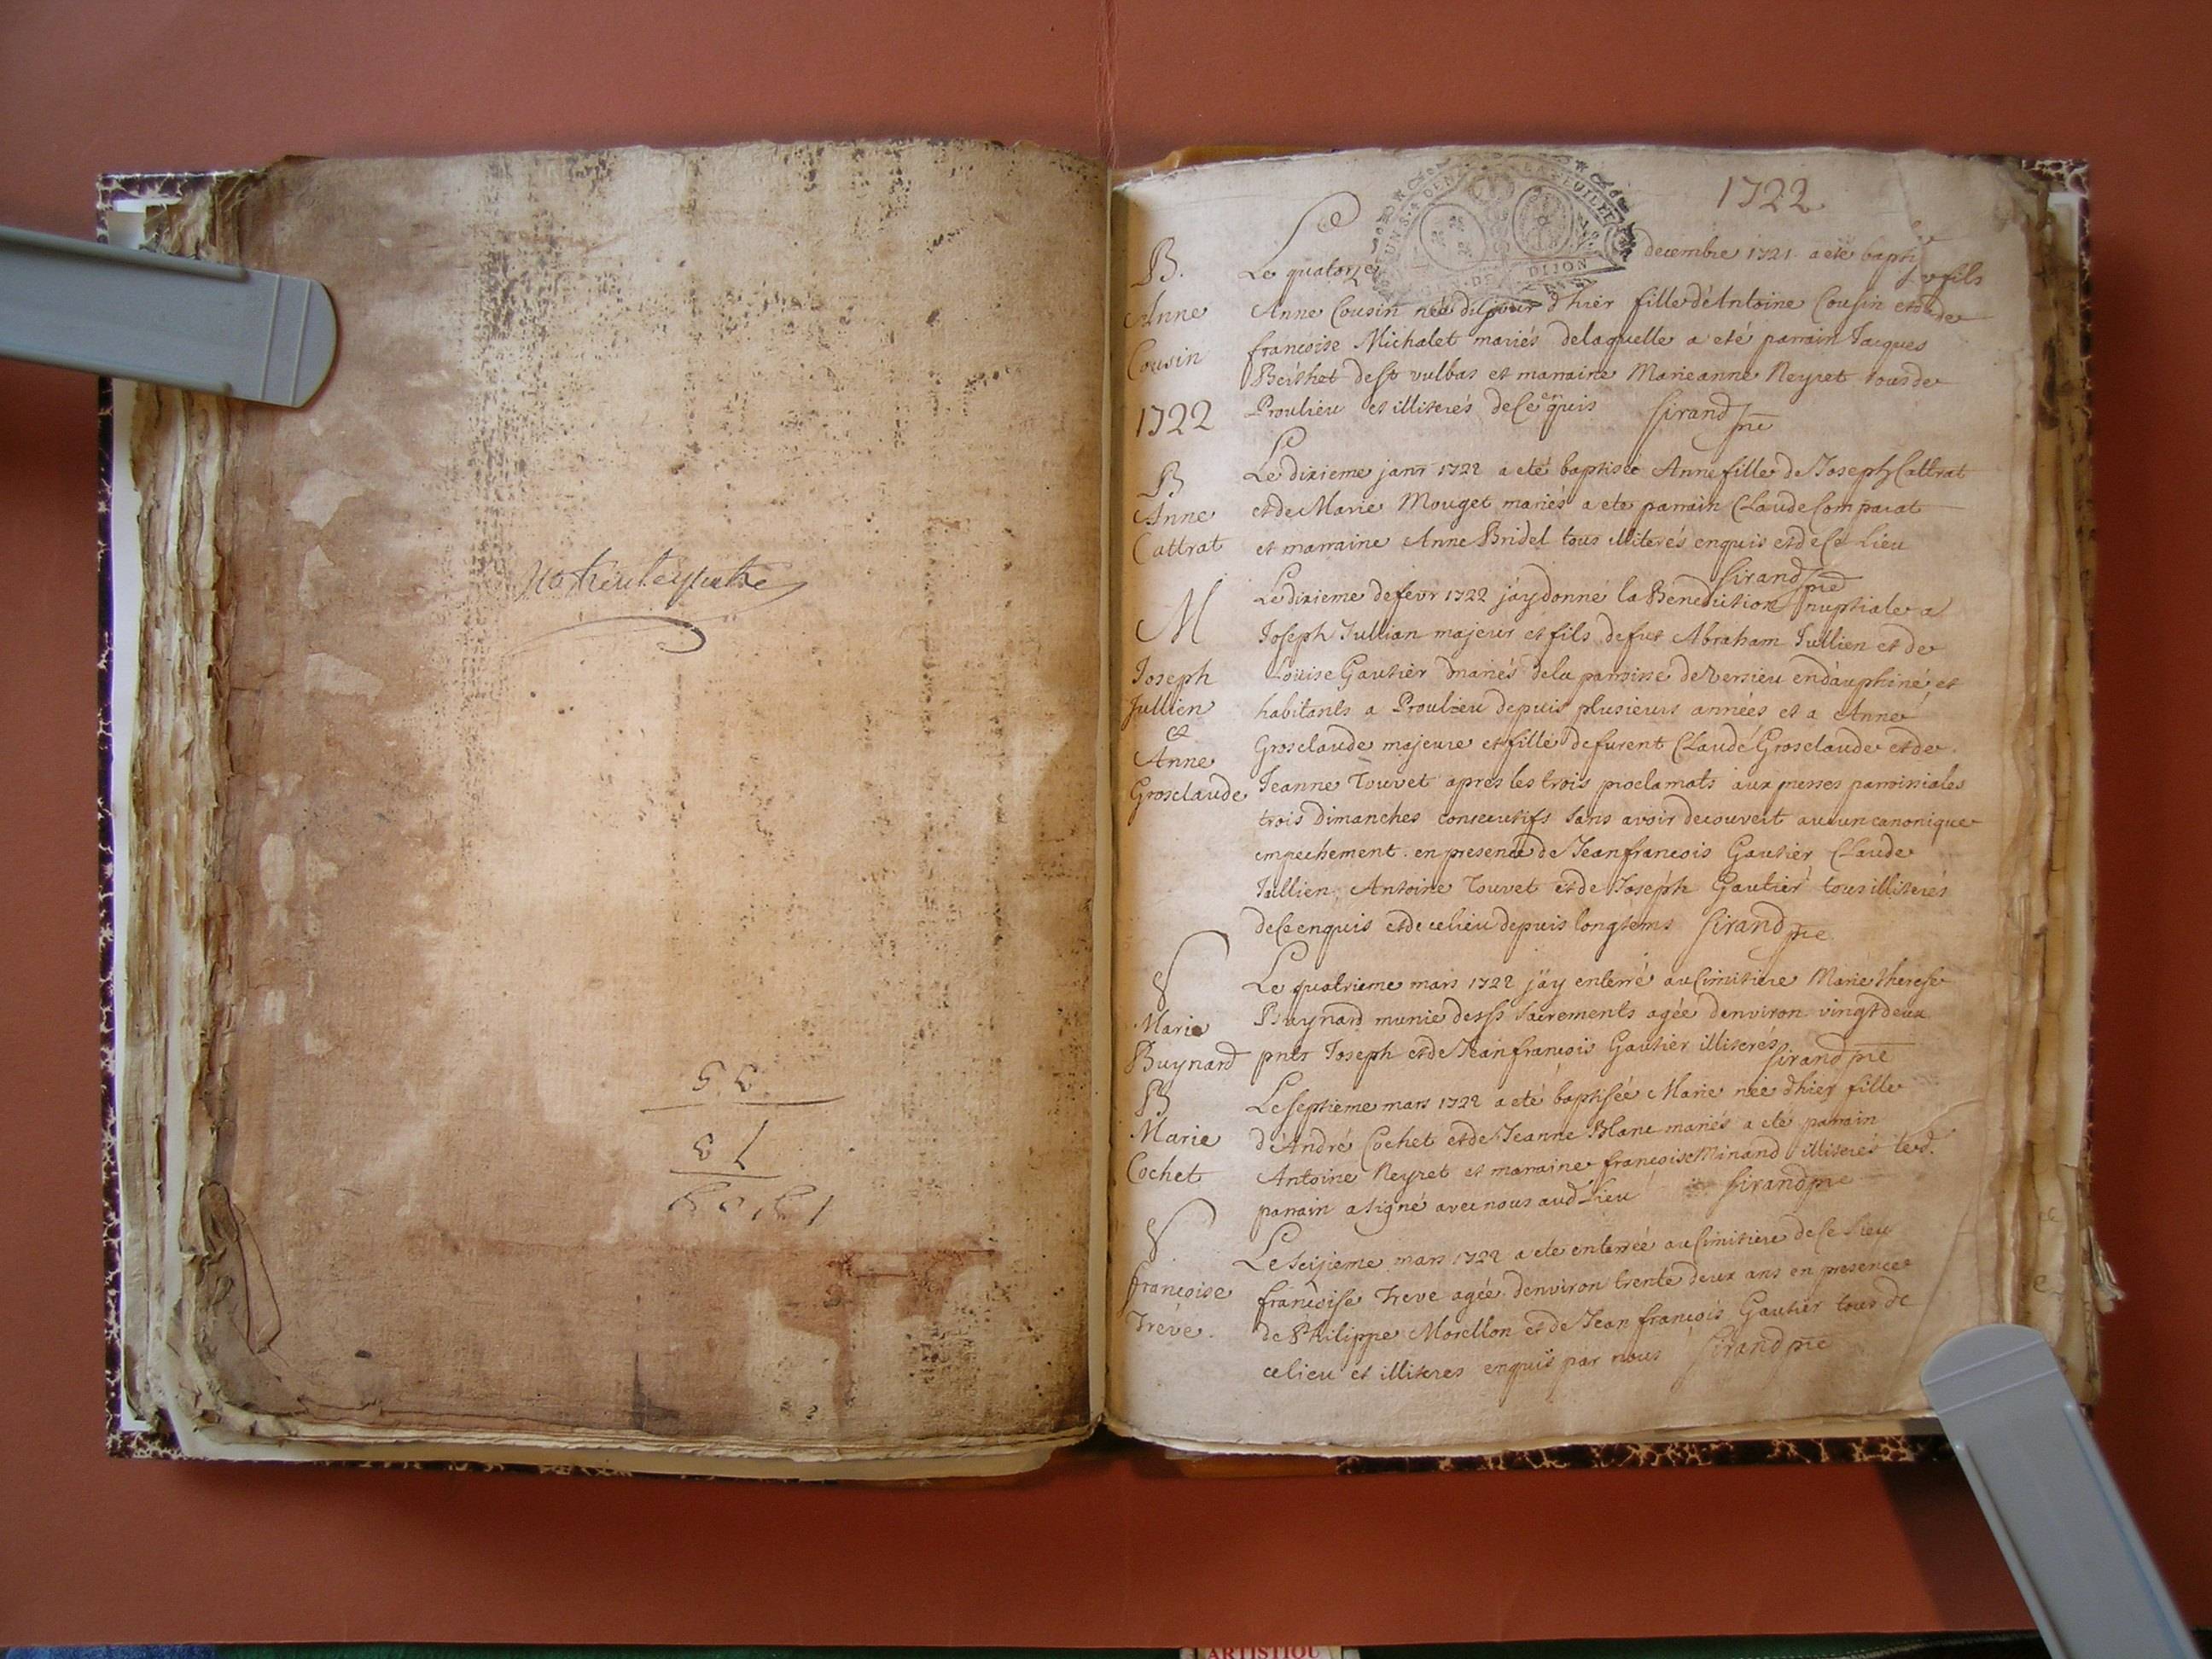 35
13
1722
Le quatorze decembre 1721 a eté bapti
B.
sée fils
Anne
Anne Cousin née du jour d'hier fille d'Antoine Cousin et de
Cousin
francoise Michalet mariés delaquelle a eté parrain Jacques
Berthet de st vulbas et marraine Marieanne Neyret tous de
1722
Proulieu et illiterés de ce enquis Sirand pre
B
Le dixieme janr 1722 a eté baptisée Anne fille de Joseph Cattrat
Anne
et de Marie Mouget mariés a ete parrain Claude Comparat
Cattrat
et marraine Anne Bridel tous illiterés enquis et de ce Lieu
Sirand pre
M
Le dixieme de fevr 1722 j'ay donné la Benediction nuptiale a
Joseph Jullian majeur et fils de fut Abraham Jullien et de
Joseph
Louise Gautier mariés dela parroisse de Versieu endauphiné et
Jullien
habitants a Proulieu depuis plusieurs années et a Anne
&
Anne
Grosclaude majeure et fille defurent Claude Grosclaude et de
Grosclaude
Jeanne Touvet apres les trois proclamats aux messes parroissiales
trois Dimanches consecutifs sans avoir decouvert aucun canonique
empechement en presence de Jeanfrancois Gautier Claude
Jullien Antoine Touvet et de Joseph Gautier tous illiterés
de ce enquis et de celieu depuis longtems Sirand pre
S
Le quatrieme mars 1722 j'ay enterré au Cimitiere Marie therese
Marie
Buynard munie des ss sacrements agée denviron vingt deux
Buynard
pnts Joseph et de Jeanfrancois Gautier illiterés Sirand pre
B
Le septieme mars 1722 a eté baptisée Marie née dhier fille
Marie
d'André Cochet et de Jeanne Blanc mariés a eté parrain
Cochet
Antoine Neyret et marraine francoise Minand illiterés led.
parrain a signé avec nous aud Lieu Sirand pre
S
Le seizieme mars 1722 a ete enterrée au Cimitiere de ce Lieu
francoise
francoise Treve agée denviron trente deux ans en presence
Treve.
de Philippe Morellon et de Jean francois Gautier tous de
celieu et illiteres enquis par nous Sirand pre
ARTISTIQU